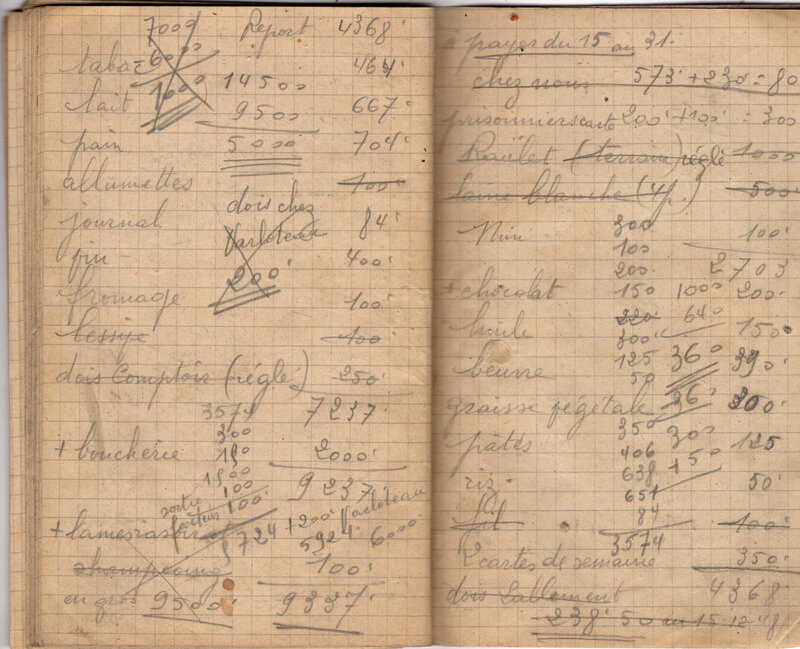 7000 Report 4368
tabac 6000 464
1000 14500
lait 9500 667
pain 5000 704
allumettes 100
dois chez
journal Varloteau 84
vin 400
200
fromage 100
100
dois Comptoir (réglé) 250
3574 7237
300
+ boucherie 2000
1500
100 9237
sortie
facteur 100
+200 Varloteau
+ lames rasoir 5924 6000
shampoing 100
en gros 9500 9337
à payer du 15 au 31.
chez nous 573 + 230 = 80
prisonniers carte 200 + 100 = 300
Raulet (terrain) réglé 1000
laine blanche (4p.) 500
300
Nini 100
100
200 2703
+ chocolat 150 1000 200
220 640
huile 300 150
beurre 125 360 390
50
graisse végétale 360 300
350 300
pâtes 406 125
638 +50
riz 651 50
84
fil 100
3574
2 cartes de semaine 350
dois Sablement 4368
238 50 au 15-12-48